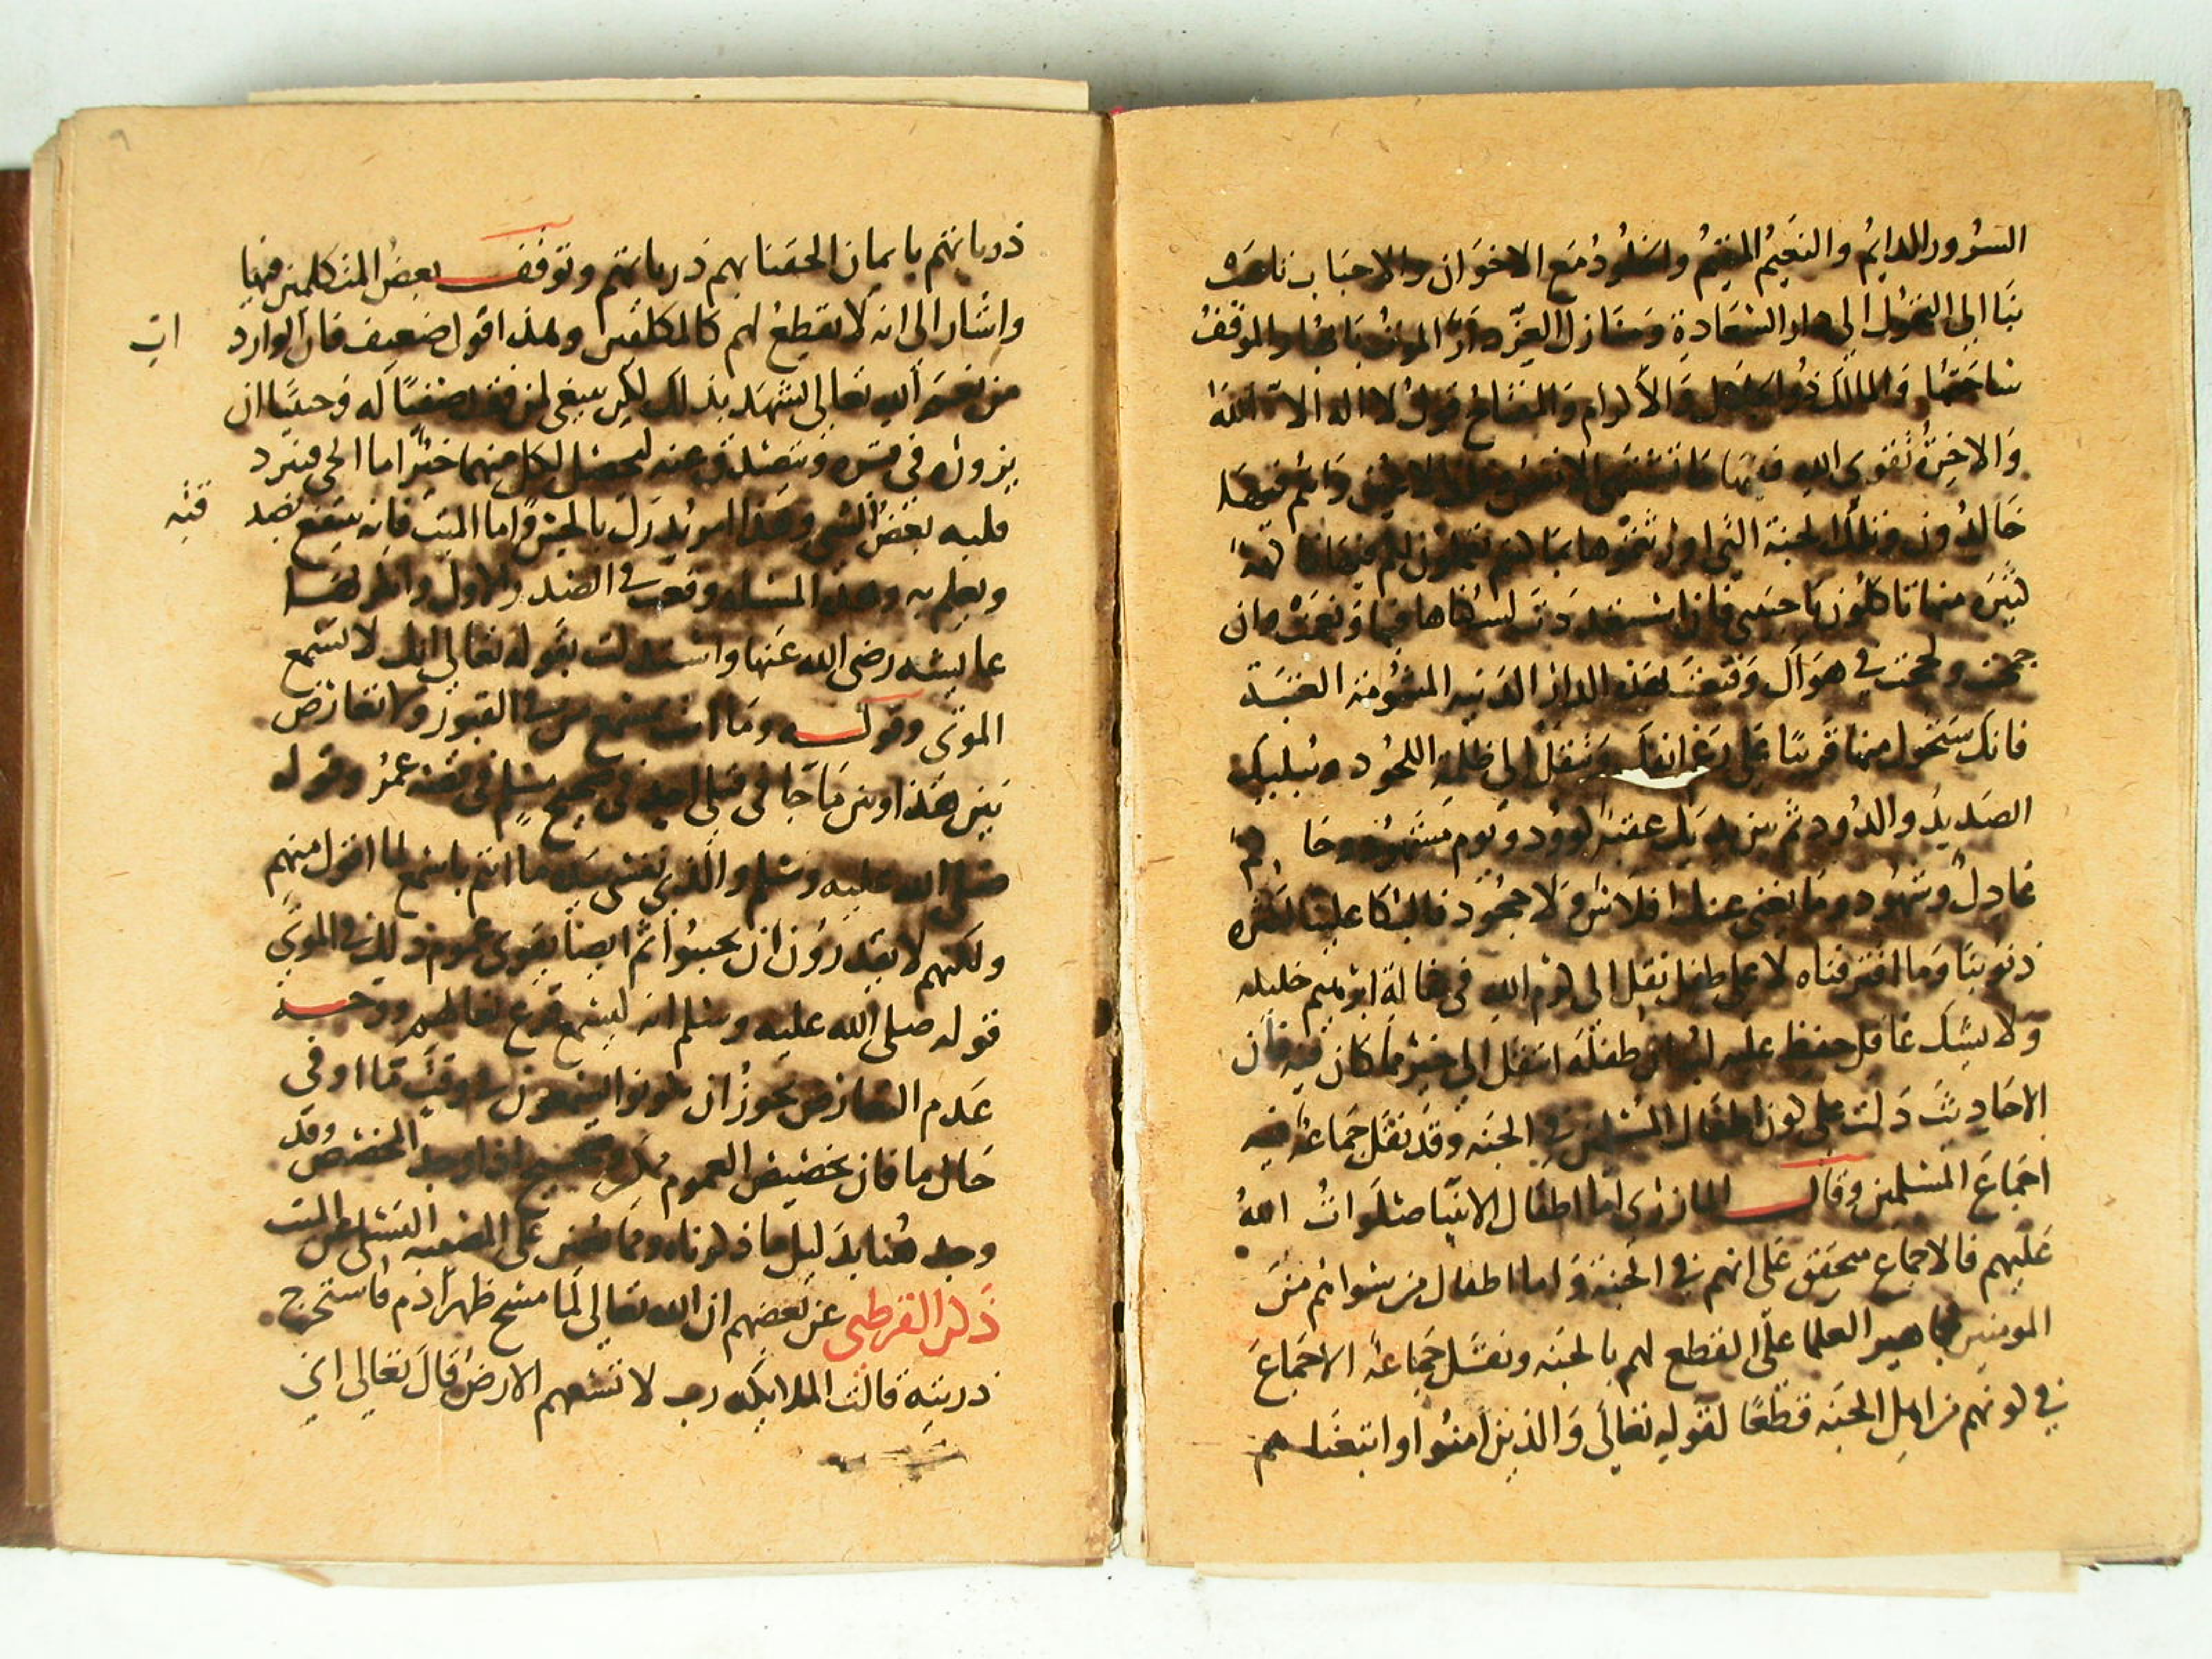 السرور الدايم والنعيم المقيم والخلود مع الاخوان والاحباب ناهضة
بنا الى التحول الى دار السعادة ومنازل العز دار الموت بابها والموقف
ساحتها والمالك ذو الجلال والاكرام والمفتاح قول لا اله الا الله
والاخرة تقوى الله فيها ما تشتهي الانفس وتلذ الاعين وانتم فيها
خالدون وتلك الجنة التي اورثتموها بما كنتم تعملون لكم فيها فاكهة
كثيرة منها تاكلون يا حبيبي فان استعددت لسكناها فيا ونعمت وان
جمحت ولححت في هواك وقنعت بهذه الدار الدنيه المشؤمة العتبة
فانك ستحول منها قريبا على رغم انفك وتنقل الى ظلمة اللحود ويبليك
الصديد والدود ثم بين يديك عقبة كوود ويوم مشهود وحاكم
عادل وشهود وما يغني عنك افلاس ولا جحود فالبكا علينا لكثرة
ذنوبنا وما اقترفناه لا على طفل نقل الى كرم الله في كفالة ابرهيم خليله
ولا يشك عاقل حفيظ عليه لبه ان طفله انتقل الى خير مما كان فيه فان
الاحاديث دلت على كون اطفال المسلمين في الجنه وقد نقل جماعة فيه
اجماع المسلمين وقال المازري اما اطفال الانبيا صلوات الله
عليهم فالاجماع محقق على انهم في الجنة واما اطفال من سواهم من
المومنين فجماهير العلما على القطع لهم بالجنه ونقل جماعة الاجماع
في كونهم من اهل الجنه قطعا لقوله تعالى والذين امنوا واتبعناهم
ذرياتهم بايمان الحقنا بهم ذرياتهم وتوقف بعض المتكلمين فيها
واشار الى انه لا يقطع لهم كالمكلفين وهذا قول ضعيف فان الوارد ات
من نعم الله تعالى تشهد بذلك لكن ينبغي لمن فقد صفيا له وحبيبا ان
يزوره في قبره ويتصدق عنه ليحصل لكل منهما خير اما الحي فيبرد
قلبه بعض الشي وهذا امر يدرك بالحس واما الميت فانه ينتفع بصد قته
ويعلم به وهذه المسئله وقعت في الصدر الاول وانكرتها
عايشه رضي الله عنها واستدلت بقوله تعالى انك لا تسمع
الموتى وقوله وما انت بمسمع من في القبور ولا تعارض
بين هذا وبين ما جا في قتلى بدر في صحيح مسلم في قصة عمر وقوله
صلى الله عليه وسلم والذي نفسي بيده ما انتم باسمع لما اقول منهم
ولكنهم لا يقدرون ان يجيبوا ثم ايضا يقوي عموم ذلك في الموتى
قوله صلى الله عليه وسلم انه ليسمع قرع نعالهم ووجه
عدم التعارض يجوز ان يكونوا يسمعون في وقت ما او في
حال ما فان تخصيص العموم ممكن وصحيح اذا وجد المخصص وقد
وجد هنا بدليل ما ذكرناه ومما يعين على المصيبه التسلي عن الميت
ذكر القرطبي عن بعضهم ان الله تعالى لما مسح ظهر ادم فاستخرج
ذريته قالت الملايكه رب لا تسعهم الارض قال تعالى اني